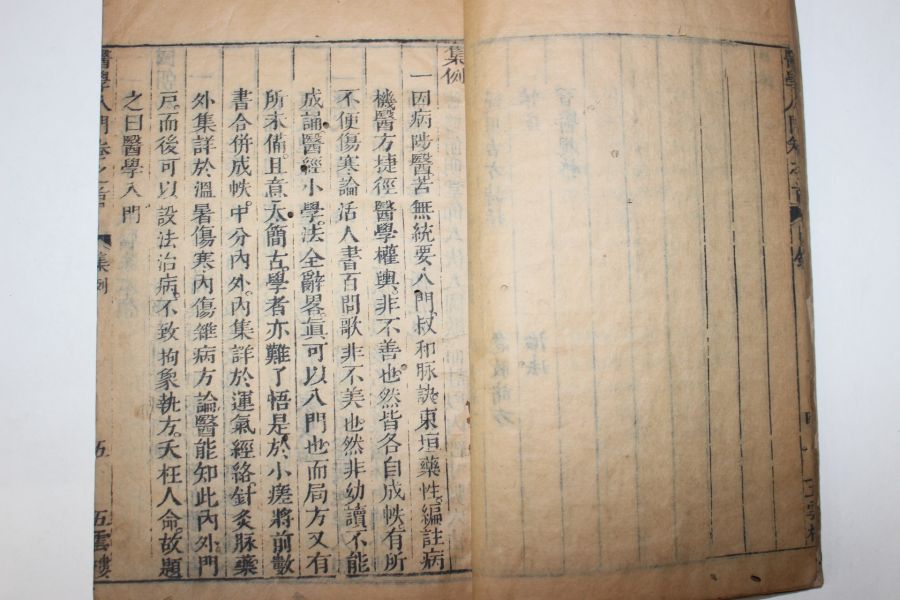 醫學入門卷之首 目錄
集例
一因病陟醫苦無統要入門。叔和脉訣東垣藥性。編註病
機醫方捷徑醫學權輿。非不善也。然皆各自成帙有所
不便傷寒論活人書百問歌非不美也然非幼讀不能
成誦醫經小學。法全辭畧。眞可以入門也。而局方又有
所未備。且意太簡古。學者亦難了悟是於小瘥將前數
書合併成帙。中分內外。內集詳於運氣經絡。針灸脉藥
外集詳於溫暑傷寒內傷雜病方論醫能知此內外門
戶。而後可以設法治病。不致拘象執方。夭枉人命。故題
之曰醫學入門
醫學入門卷之首 集例 五 五雲樓